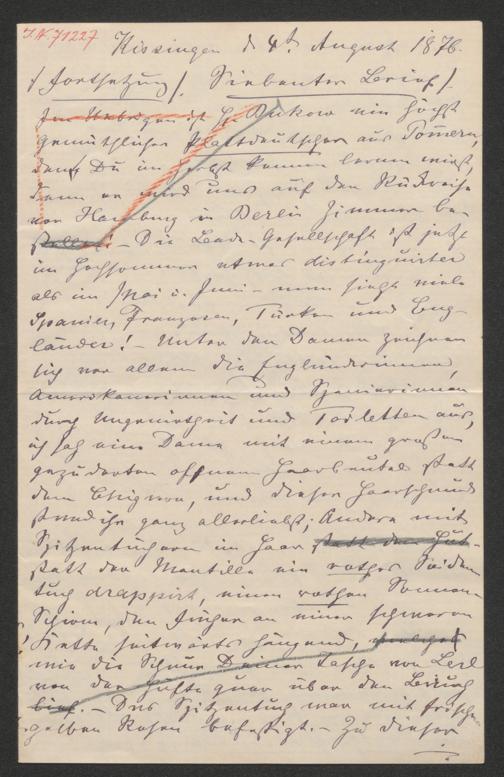 I.N. 71227
Kissingen d 4t August 1876.
/ Fortsetzung /. Siebenter Brief /.
Im Uebrigen ist H. ein höchst
gemüthlicher Plattdeutscher aus Pommern,
den Du im kennen lernen wirst,
denn er wird uns auf der Rückreise
von Hamburg in Berlin Zimmer be-
stellen. – Die Bade-Gesellschaft ist jetzt
im Hochsommer etwas distinguirter
als im Mai u. Juni – man sieht viele
Spanier, Franzosen, Türken und Eng-
länder! – Unter den Damen zeichnen
sich vor allem die Engländerinnen,
Amerikanerinnen und Spanierinnen
durch Ungenirtheit und Toiletten aus,
ich sah eine Dame mit einem großen
gezudarten offnem Haarbeutel statt
dem Chignon, und dieser Haarschmuck
stand ihr ganz allerliebst; Andere mit
Spitzentüchern im Haar statt den Hut-
statt der Mantille ein rothes Seiden
tuch drappirt, einen rothen Sonnen-
Schirm, den Fächer an einer schweren
Kette seitwärts hängend,
wie die Schnur Deiner Tasche von
von der Hüfte quer über den
– Das Spitzentuch war mit frischen
gelben Rosen befestigt. – Zu dieser